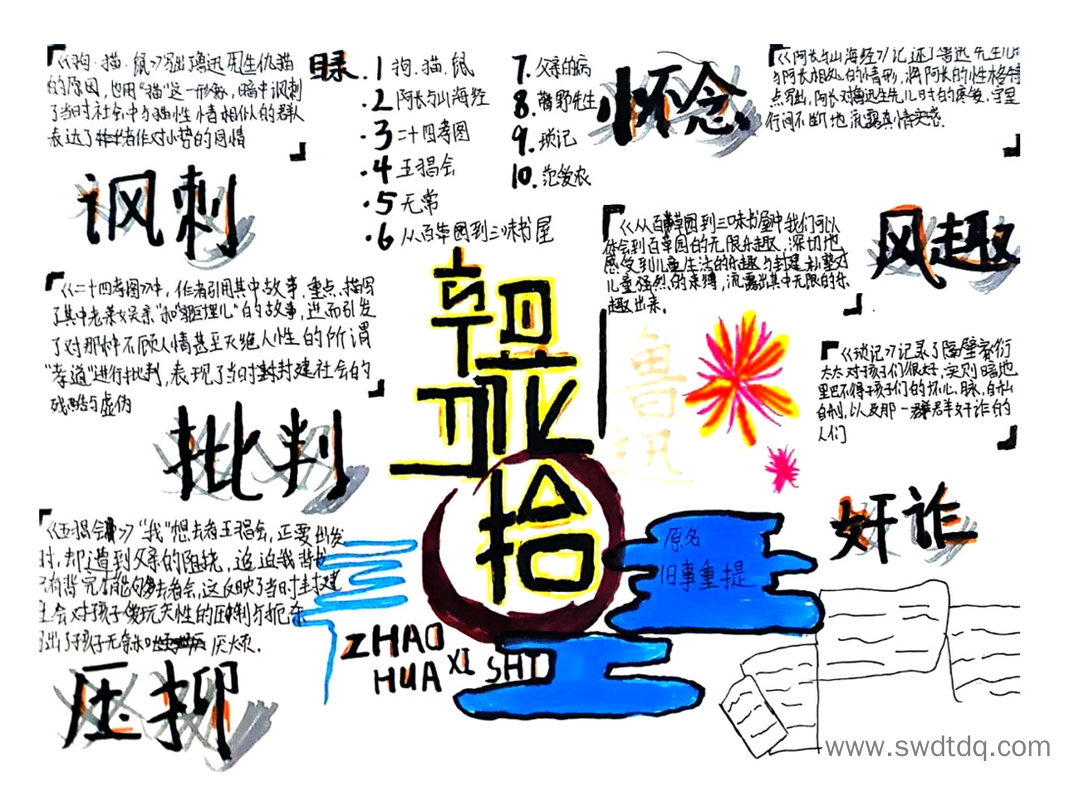 《狗·猫·鼠》写出了鲁迅先生仇猫
的原因，也用“猫”这一形物，暗中讽刺
了当时社会中与猫性情相似的群人
表达了作者对小势的同情
讽刺
目录
1 狗.猫.鼠
2 阿长与山海经
3 二十四孝图
4 五猖会
5 无常
6 从百草园到三味书屋
7. 父亲的病
8. 藤野先生
9. 琐记
10. 范爱农
怀念
《阿长与山海经》记述了鲁迅先生儿
与阿长相处的情形，将阿长的性格特
点写出，阿长对鲁迅先生儿时的疼爱，字里
行间不断地流露真情实感.
《从百草园到三味书屋中我们可以
体会到百草园的无限乐趣，深切地
感受到儿童生活的乐趣与封建
儿童强烈的束缚，流露出其中无限的乐
趣出来.
风趣
《二十四孝图》中，作者引用其中故事，重点描图
了其中老莱娱亲”和“郭巨埋儿”的故事，进而引发
了对那种不顾人情甚至灭绝人性的所谓
“孝道”进行批判，表现了当时封封建社会的
残酷与虚伪
批判
朝花夕拾
鲁迅
《琐记》记录了隔壁家衍
太太对孩子们很好，实则暗地
里巴不得孩子们的坏心眼，自私
自利，以及那一群奸诈的
人们
奸诈
《五猖会》“我”想去看五猖会，正要出发
时，却遭到父亲的阻挠，逼迫我背书
只有背完才能够去看会，这反映了当时封建
社会对孩子爱玩天性的压制与扼杀
写出了孩子无奈和厌烦.
压抑
原名
旧事重提
ZHAO
HUA XI SHI
www.swdtdq.com